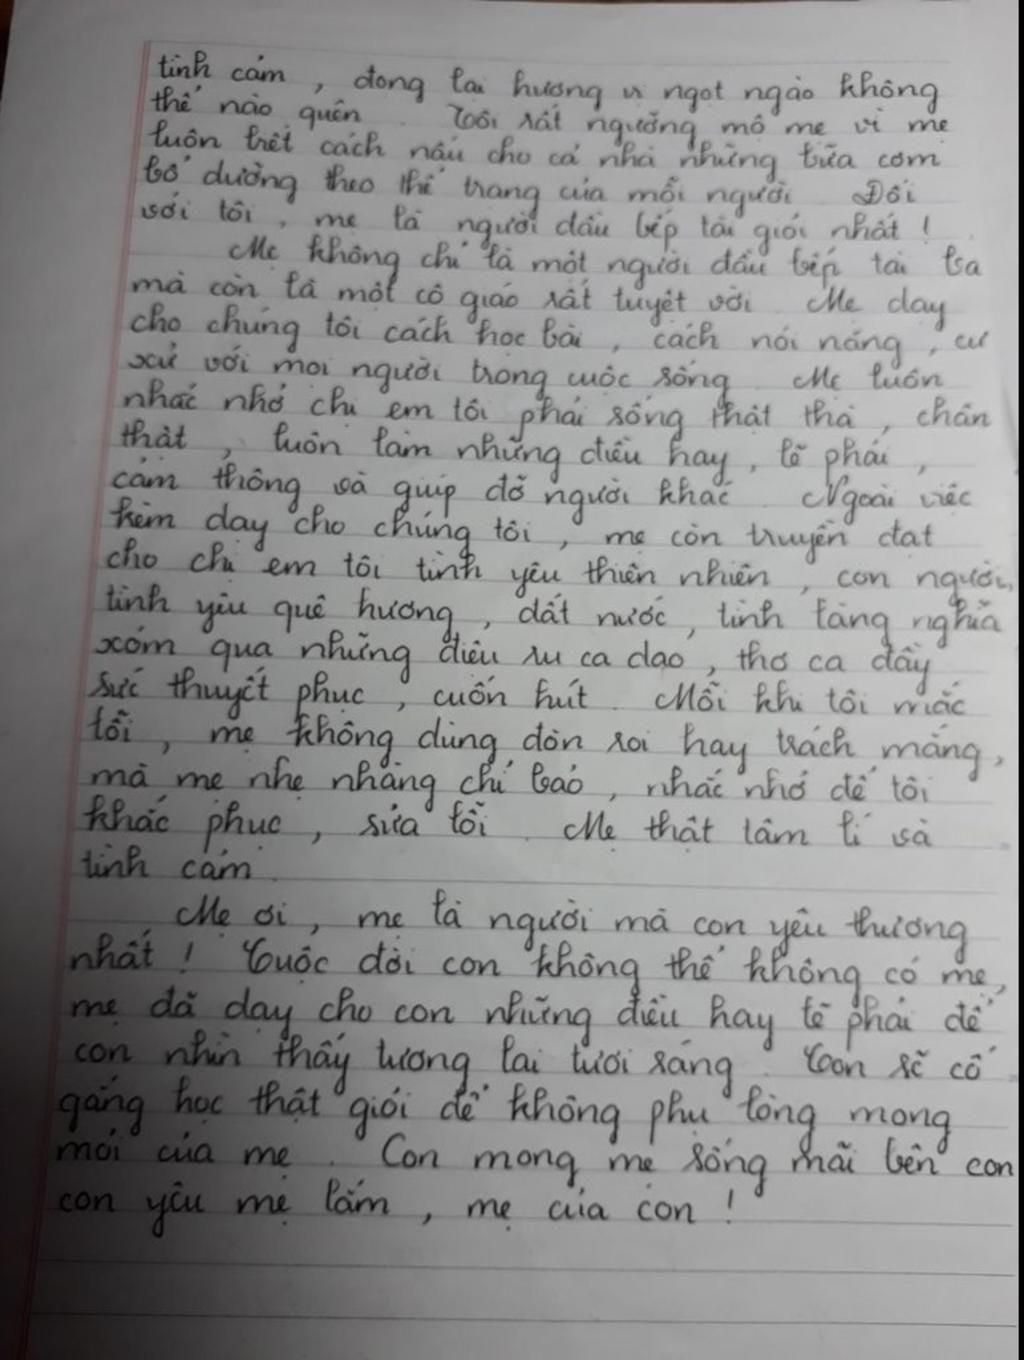 tình cảm , đong lại hương vị ngọt ngào không
thể nào quên . Tôi rất ngưỡng mộ mẹ vì mẹ
luôn biết cách nấu cho cả nhà những bữa cơm
bổ dưỡng theo thể trạng của mỗi người . Đối
với tôi , mẹ là người đầu bếp tài giỏi nhất !
Mẹ không chỉ là một người đầu bếp tài ba
mà còn là một cô giáo rất tuyệt vời . Mẹ dạy
cho chúng tôi cách học bài , cách nói năng , cư
xử với mọi người trong cuộc sống . Mẹ luôn
nhắc nhở chị em tôi phải sống thật thà , chân
thật , luôn làm những điều hay , lẽ phải ,
cảm thông và giúp đỡ người khác . Ngoài việc
kèm dạy cho chúng tôi , mẹ còn truyền đạt
cho chị em tôi tình yêu thiên nhiên , con người,
tình yêu quê hương , đất nước , tình làng nghĩa
xóm qua những điệu ru ca dao , thơ ca đầy
sức thuyết phục , cuốn hút . Mỗi khi tôi mắc
lỗi , mẹ không dùng đòn roi hay trách mắng,
mà mẹ nhẹ nhàng chỉ bảo , nhắc nhở để tôi
khắc phục , sửa lỗi . Mẹ thật tâm lí và
tình cảm .
Mẹ ơi , mẹ là người mà con yêu thương
nhất ! Cuộc đời con không thể không có mẹ,
mẹ đã dạy cho con những điều hay lẽ phải để
con nhìn thấy tương lai tươi sáng . Con sẽ cố
gắng học thật giỏi để không phụ lòng mong
mỏi của mẹ . Con mong mẹ sống mãi bên con
con yêu mẹ lắm , mẹ của con !